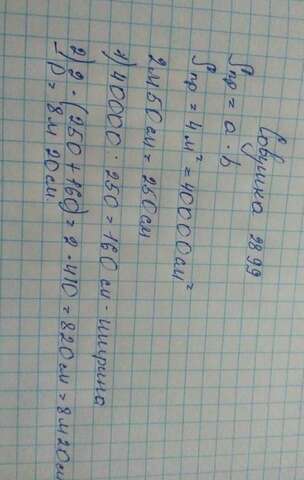 Sпр = a · b
Sпр = 4 м² = 40000 см²
2 м 50 см = 250 см
1) 40000 : 250 = 160 см - ширина
2) 2 · (250 + 160) = 2 · 410 = 820 см = 8 м 20 см
P = 8 м 20 см